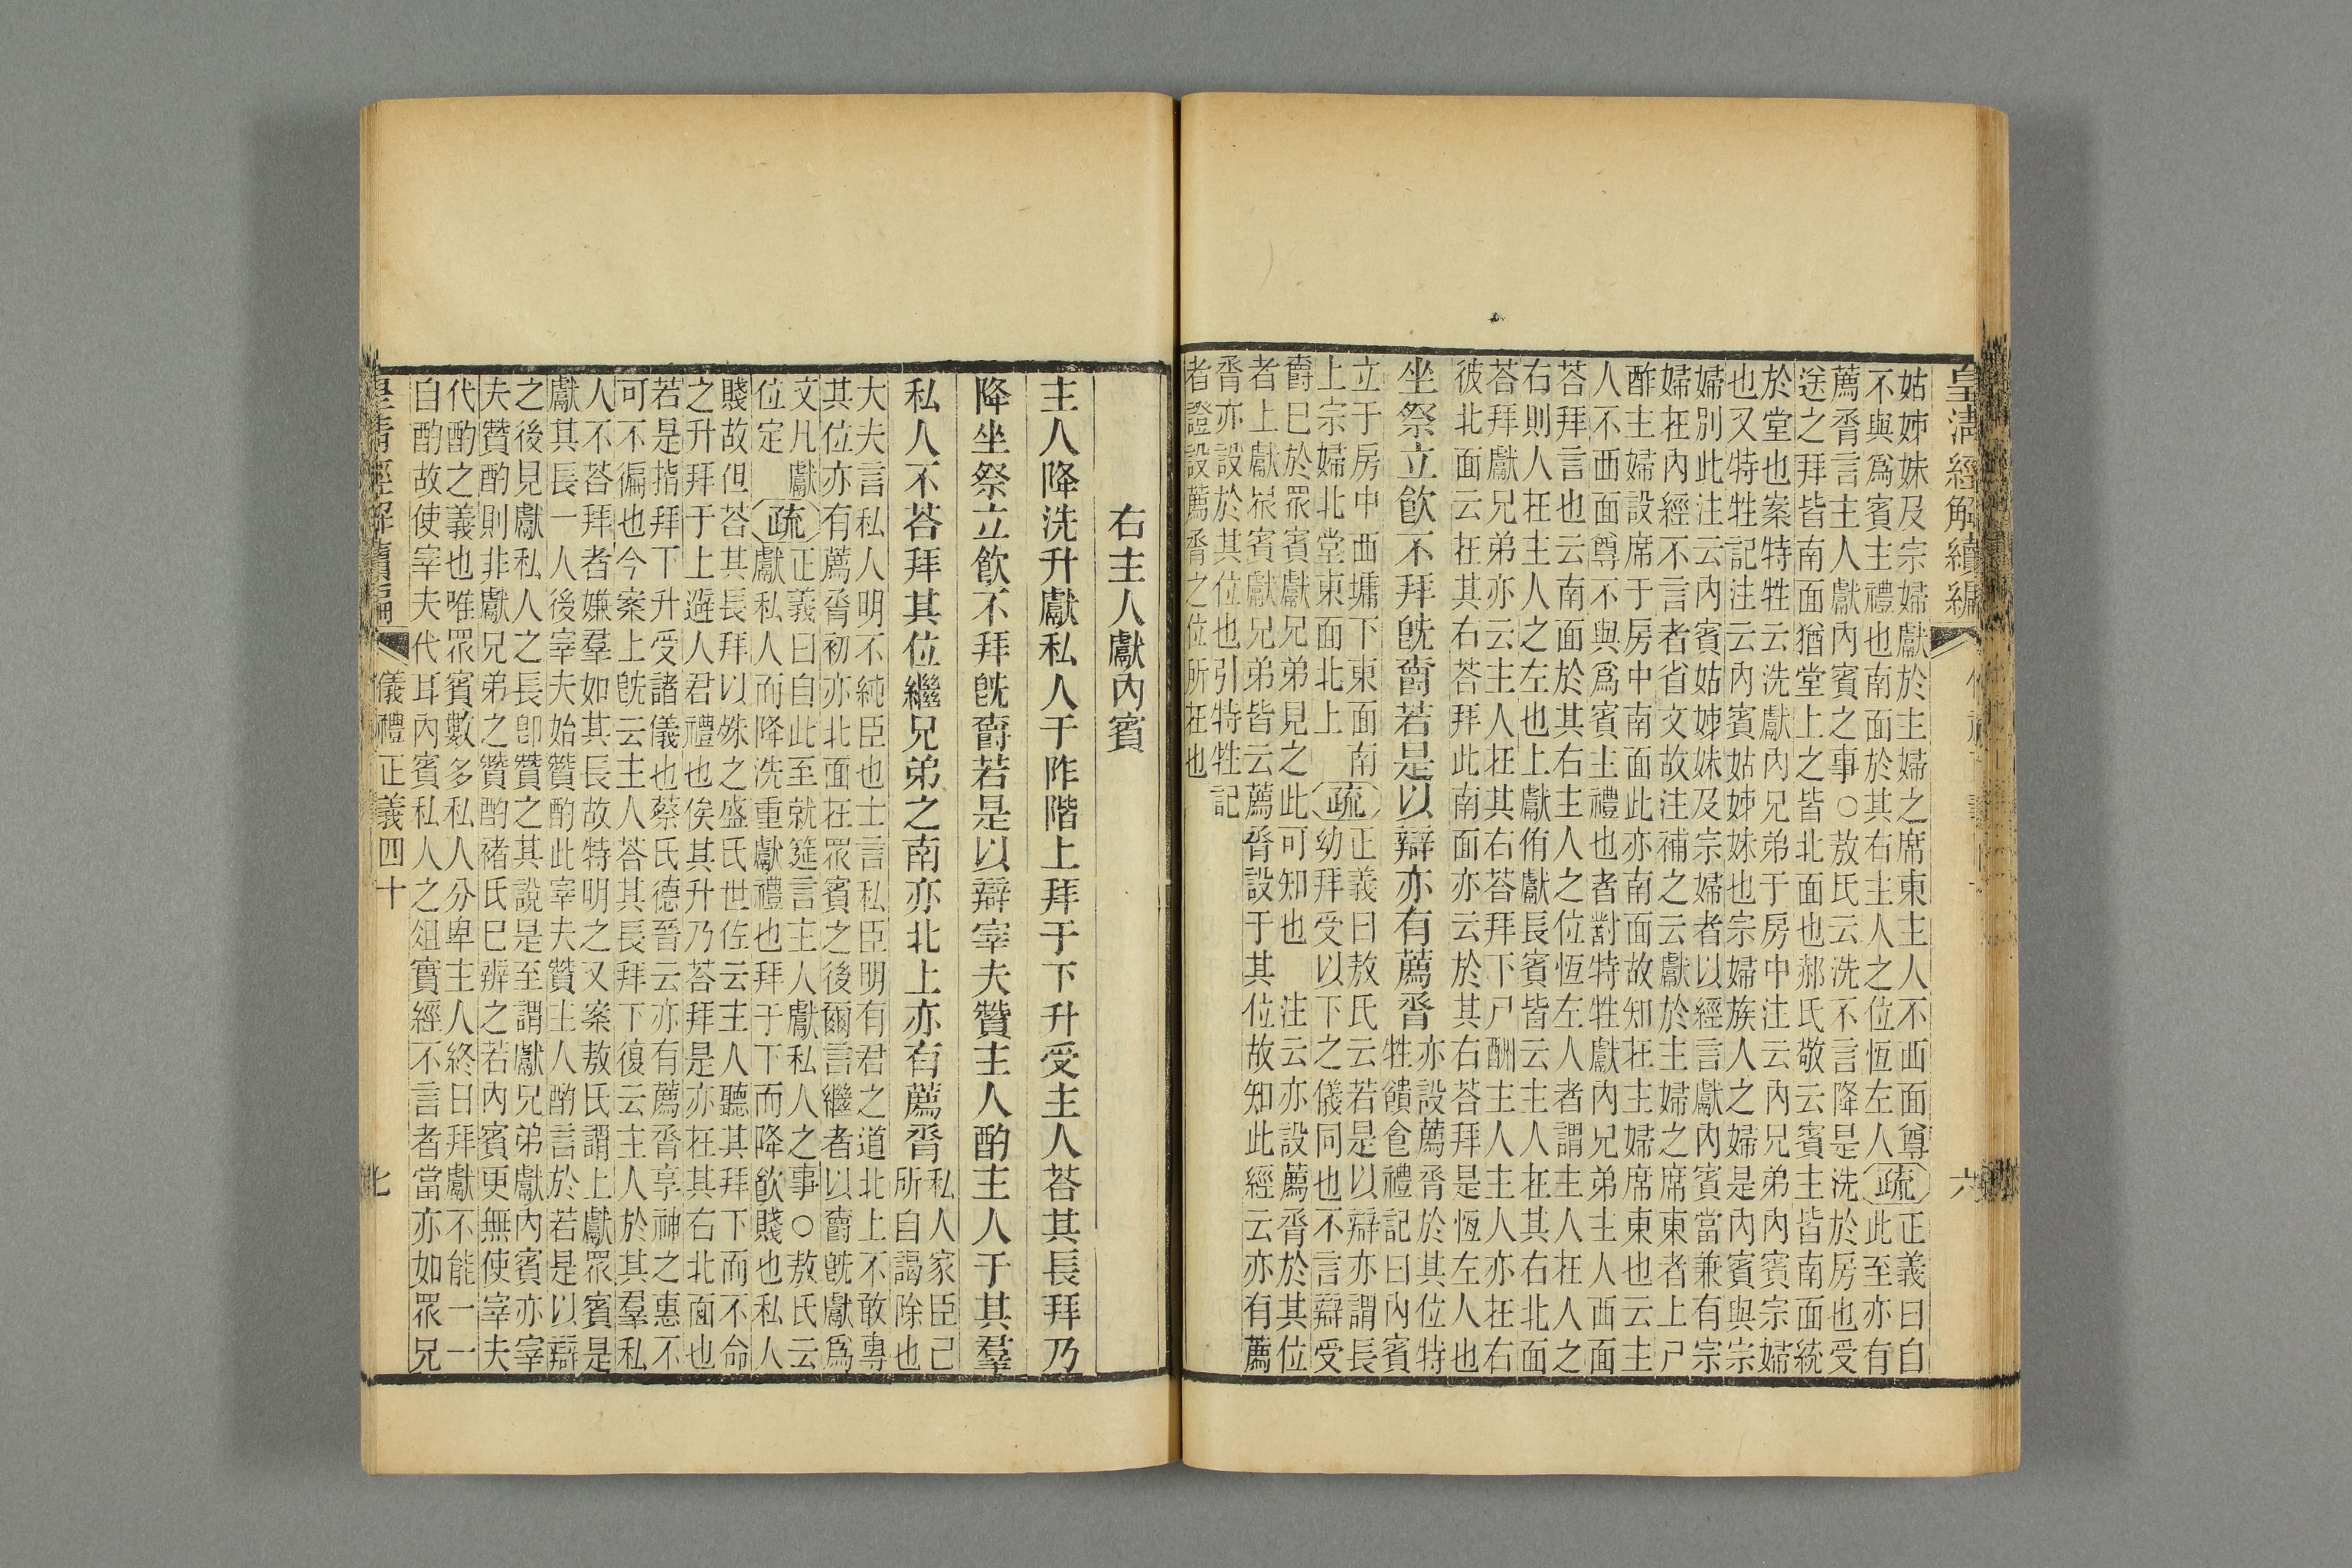 皇清經解續編
六
姑姊妹及宗婦獻於主婦之席東主人不西面尊
不與爲賓主禮也南面於其右主人之位恆左人
疏
正義曰自
此至亦有
薦脀言主人獻內賓之事○敖氏云洗不言降是洗於房也受
送之拜皆南面猶堂上之皆北面也郝氏敬云賓主皆南面統
於堂也案特牲云洗獻內兄弟于房中注云內兄弟內賓宗婦
也又特牲記注云內賓姑姊妹也宗婦族人之婦是內賓與宗
婦別此注云內賓姑姊妹及宗婦者以經言獻內賓當兼有宗
婦在內經不言者省文故注補之云獻於主婦之席東者上尸
酢主婦設席于房中南面此亦南面故知在主婦席東也云主
人不西面尊不與爲賓主禮也者對特牲獻內兄弟主人西面
荅拜言也云南面於其右主人之位恆左人者謂主人在人之
右則人在主人之左也上獻侑獻長賓皆云主人在其右北面
荅拜獻兄弟亦云主人在其右荅拜下尸酬主人主人亦在右
彼北面云在其右荅拜此南面亦云於其右荅拜是恆左人也
坐祭立飮不拜旣爵若是以辯亦有薦脀
亦設薦脀於其位特
牲饋食禮記曰內賓
立于房中西墉下東面南
上宗婦北堂東面北上
疏
正義曰敖氏云若是以辯亦謂長
幼拜受以下之儀同也不言辯受
爵已於眾賓獻兄弟見之此可知也 注云亦設薦脀於其位
者上獻眾賓獻兄弟皆云薦脀設于其位故知此經云亦有薦
脀亦設於其位也引特牲記
者證設薦脀之位所在也
右主人獻內賓
主人降洗升獻私人于阼階上拜于下升受主人荅其長拜乃
降坐祭立飮不拜旣爵若是以辯宰夫贊主人酌主人于其羣
私人不荅拜其位繼兄弟之南亦北上亦有薦脀
私人家臣己
所自謁除也
大夫言私人明不純臣也士言私臣明有君之道北上不敢專
其位亦有薦脀初亦北面在眾賓之後爾言繼者以爵旣獻爲
文凡獻
位定
疏
正義曰自此至就筵言主人獻私人之事○敖氏云
獻私人而降洗重獻禮也拜于下而降飮賤也私人
賤故但荅其長拜以殊之盛氏世佐云主人聽其拜下而不命
之升拜于上遜人君禮也俟其升乃荅拜是亦在其右北面也
若是指拜下升受諸儀也蔡氏德晉云亦有薦脀享神之惠不
可不徧也今案上旣云主人荅其長拜下復云主人於其羣私
人不荅拜者嫌羣如其長故特明之又案敖氏謂上獻眾賓是
獻其長一人後宰夫始贊酌此宰夫贊主人酌言於若是以辯
之後見獻私人之長卽贊之其說是至謂獻兄弟獻內賓亦宰
夫贊酌則非獻兄弟之贊酌褚氏已辨之若內賓更無使宰夫
代酌之義也唯眾賓數多私人分卑主人終日拜獻不能一一
自酌故使宰夫代耳內賓私人之俎實經不言者當亦如眾兄
皇清經解續編
儀禮正義四十
七